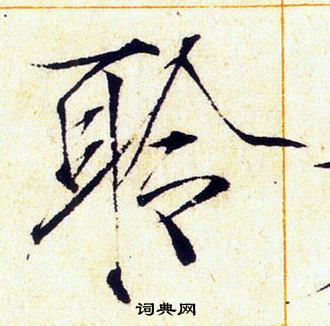 聆
词典网